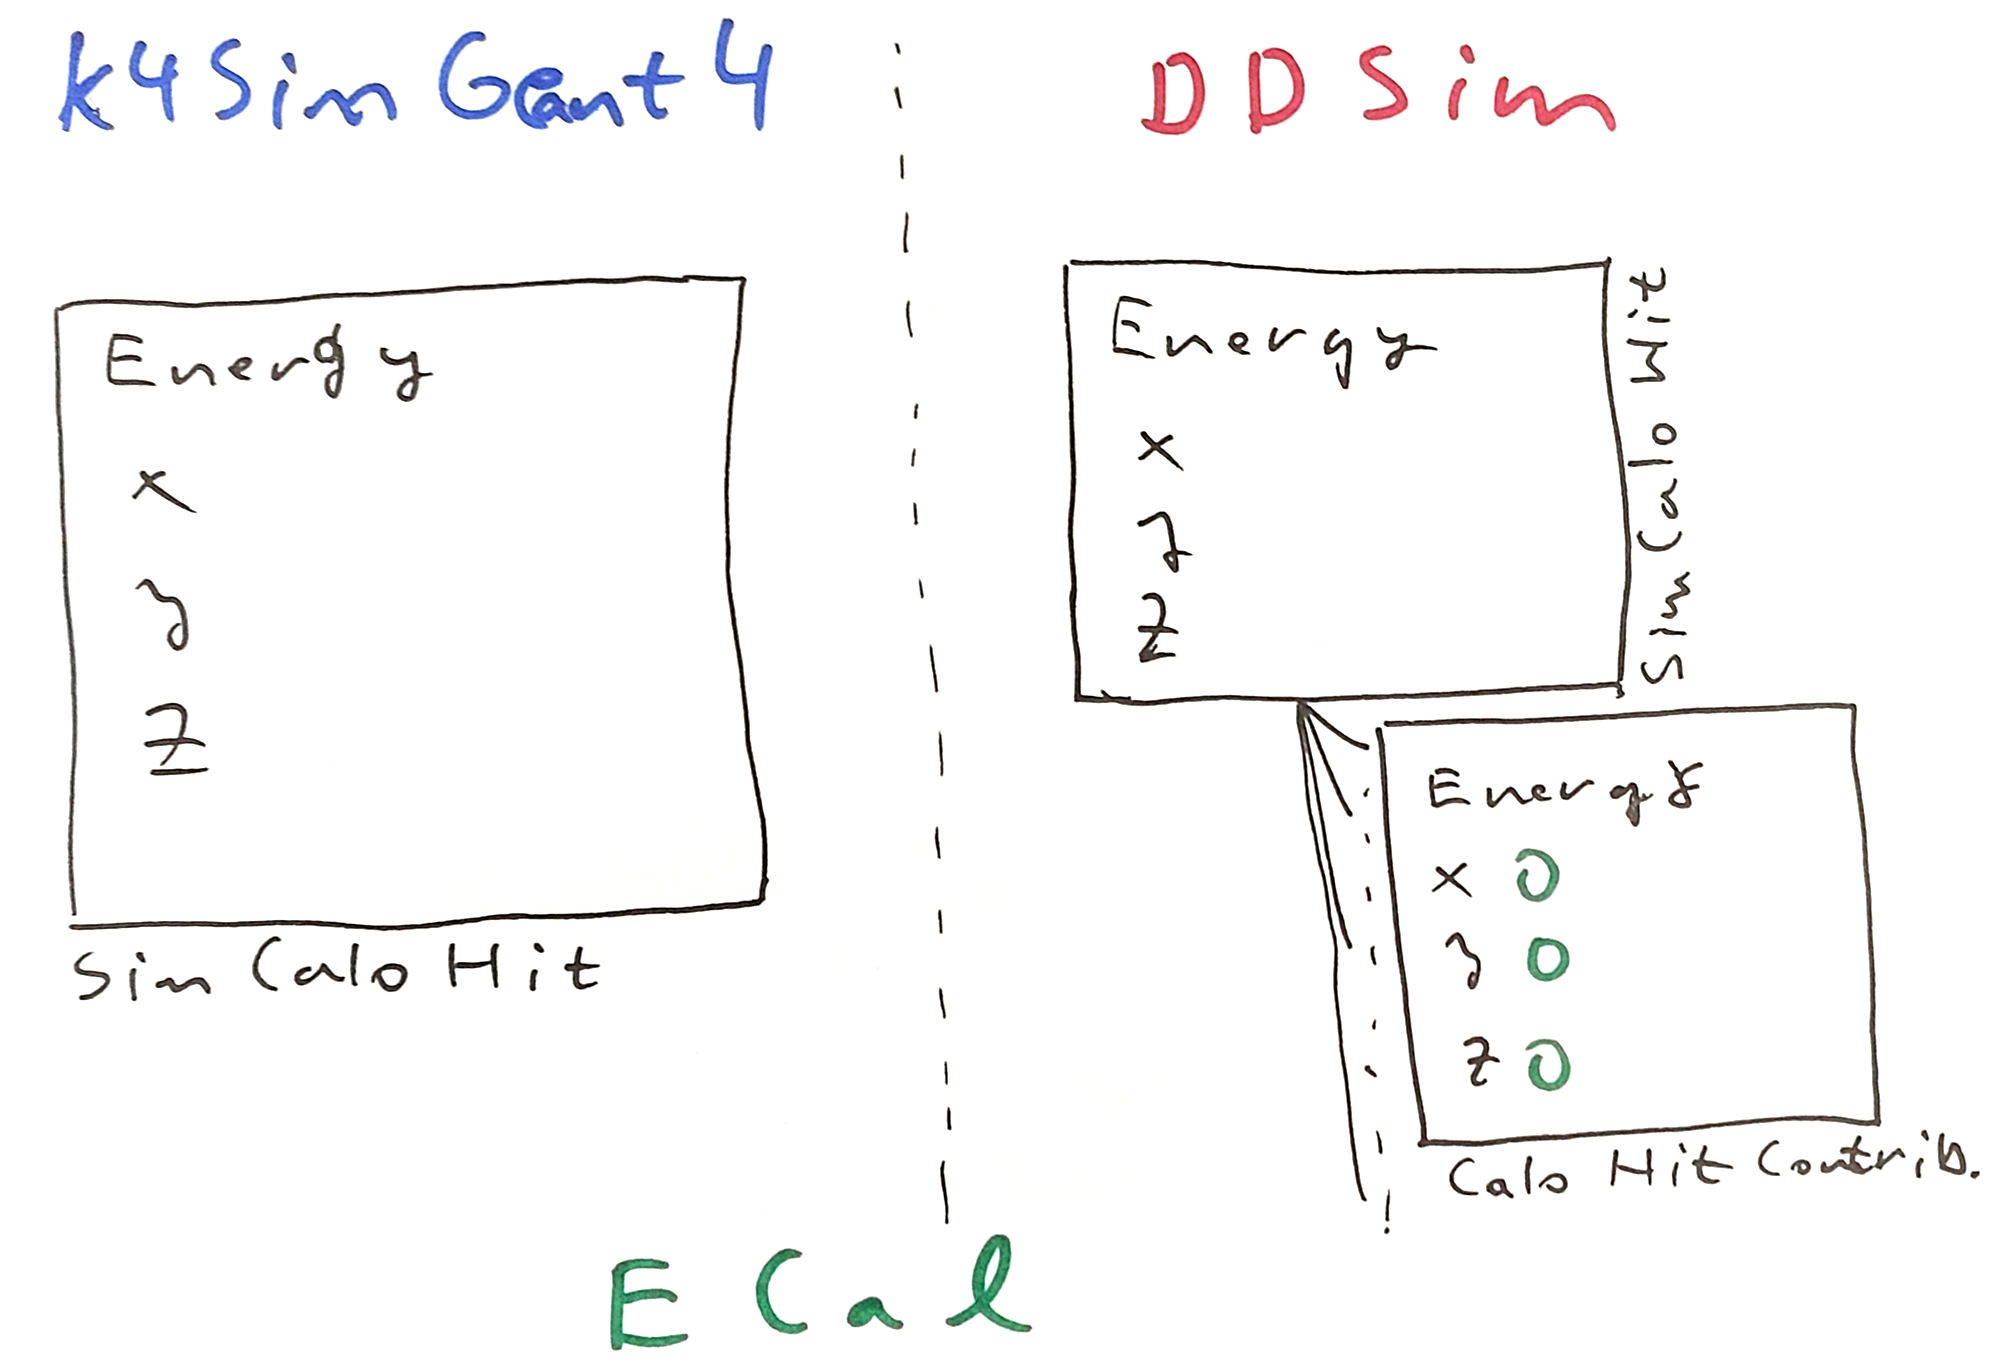 k4SimGeant4
DDSim
Energy
x
y
z
Sim Calo Hit
Energy
x
y
z
Sim Calo Hit
Energy
x 0
y 0
z 0
Calo Hit Contrib.
ECal